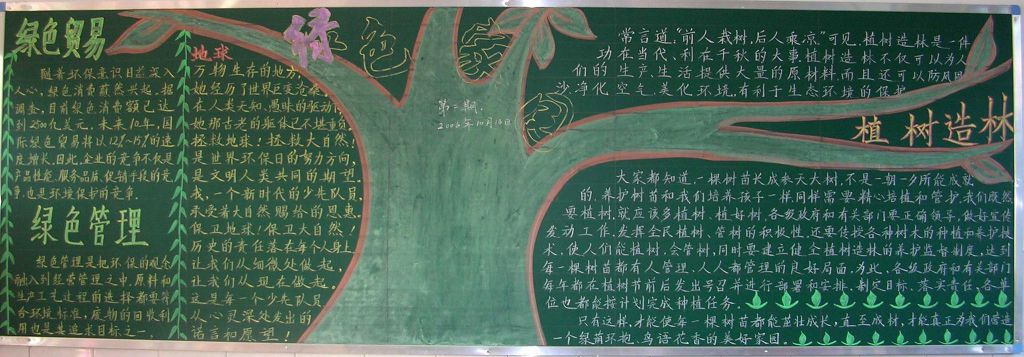 绿色贸易
随着环保意识日益深入
人心,绿色消费蔚然兴起。据
调查,目前绿色消费额已达
到2500亿美元,未来10年,国
际绿色贸易将以12%-15%的速
度增长。因此,企业的竞争不仅是
产品性能、服务品质、促销手段的竞
争,也是环境保护的竞争。
绿色管理
绿色管理是把环保的观念
融入到经营管理之中,原料和
生产工艺过程的选择都要符
合环境标准,废物的回收利
用也是其追求目标之一。
地球
万物生存的地方,
她经历了世界巨变沧桑
在人类无知、愚昧的驱动
她那古老的躯体已不堪重负
拯救地球!拯救大自然!
是世界环保日的努力方向,
是文明人类共同的期望。
我,一个新时代的少先队员
承受着大自然赐给的恩惠。
保卫地球!保卫大自然!
历史的责任落在每个人身上
让我们从细微处做起,
让我们从现在做起。
这是每一个少先队员
从心灵深处发出的
诺言和愿望!
绿色
第二期
2006年10月16日
常言道,“前人栽树,后人乘凉”可见,植树造林是一件
功在当代、利在千秋的大事,植树造林不仅可以为人
们的生产、生活提供大量的原材料,而且还可以防风固
沙、净化空气、美化环境,有利于生态环境的保护
植树造林
大家都知道,一棵树苗长成参天大树,不是一朝一夕所能成就
的,养护树苗和我们培养孩子一样,同样需要精心培植和管护,我们既然
要植树,就应该多植树、植好树,各级政府和有关部门要正确领导,做好宣传
发动工作,发挥全民植树、管树的积极性,还要传授各种树木的种植和养护技
术,使人们能植树、会管树,同时要建立健全植树造林的养护监督制度,达到
每一棵树苗都有人管理、人人都管理的良好局面,为此,各级政府和有关部门
每年都在植树节前后发出号召并进行部署和安排,制定目标、落实责任,各单
位也都能按计划完成种植任务。
只有这样,才能使每一棵树苗都能茁壮成长,直至成材,才能真正为我们营造
一个绿荫环抱、鸟语花香的美好家园。